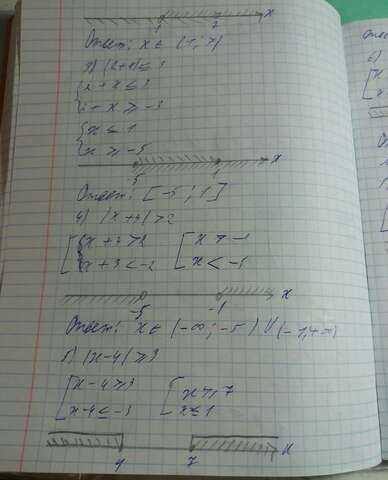 1 2 x
Ответ: x ∈ (1; 7)
3) |2+x| ≤ 3
{ 2 + x ≤ 3
{ 2 + x ≥ -3
{ x ≤ 1
{ x ≥ -5
-5 1 x
Ответ: [-5; 1]
4) |x + 3| > 2
[ x + 3 > 2 [ x > -1
[ x + 3 < -2 [ x < -5
-5 -1 x
Ответ: x ∈ (-∞; -5) U (-1, +∞)
5) |x-4| ≥ 3
[ x - 4 ≥ 3 [ x ≥ 7
[ x - 4 ≤ -3 [ x ≤ 1
1 7 x